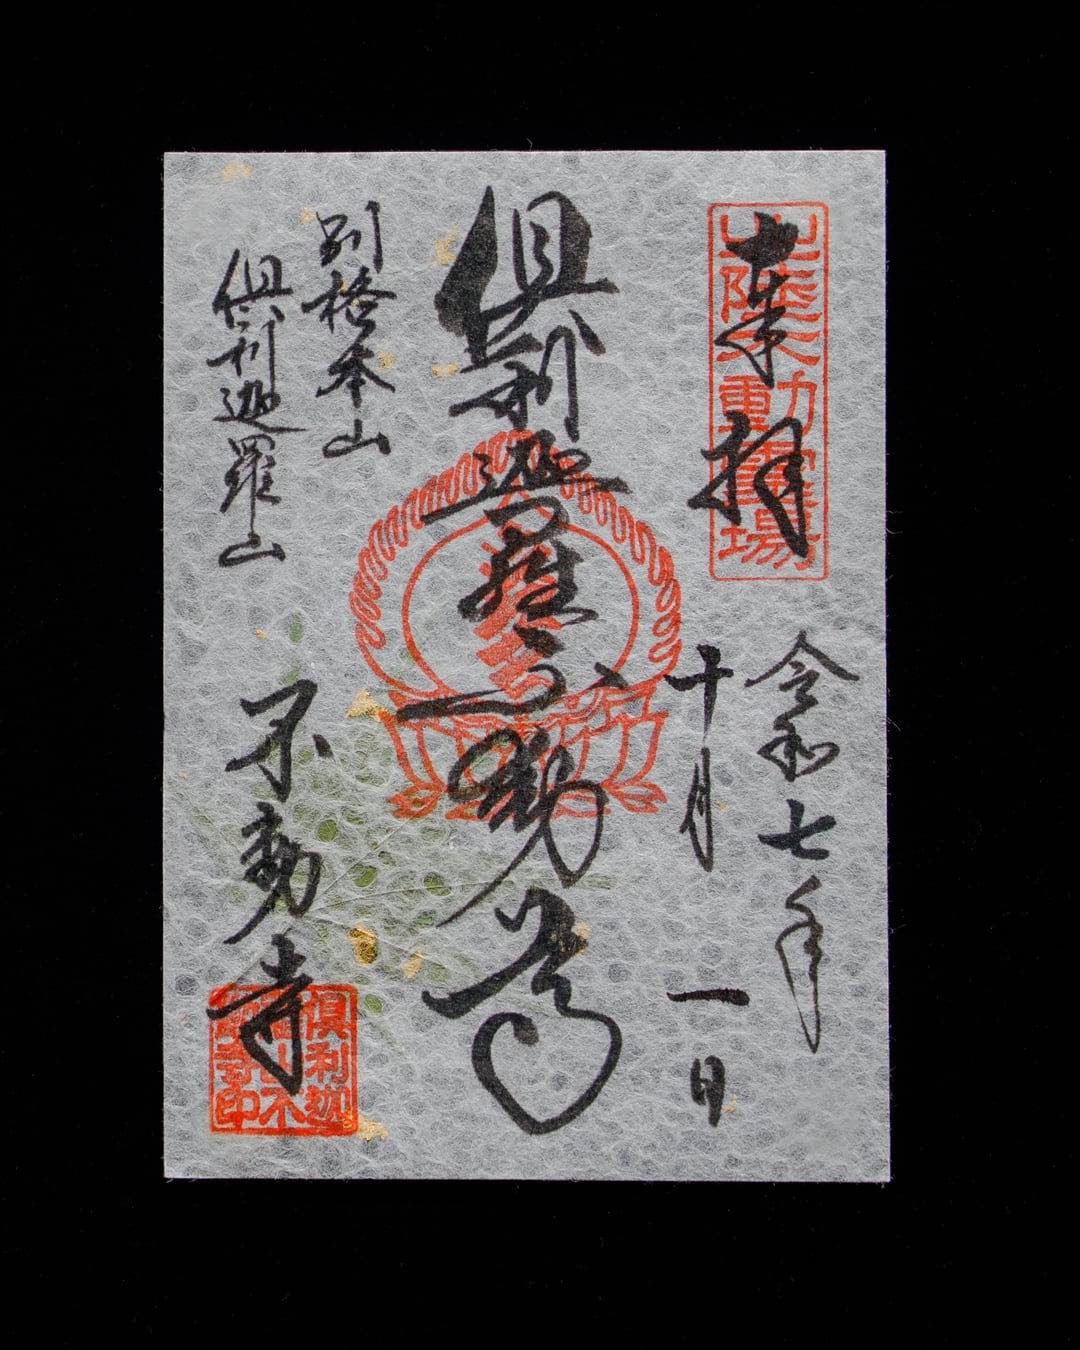 奉拝
北陸不動霊場
令和七年
十月一日
倶利迦羅不動尊
別格本山
倶利迦羅山
不動寺
倶利迦
羅山不
動寺印